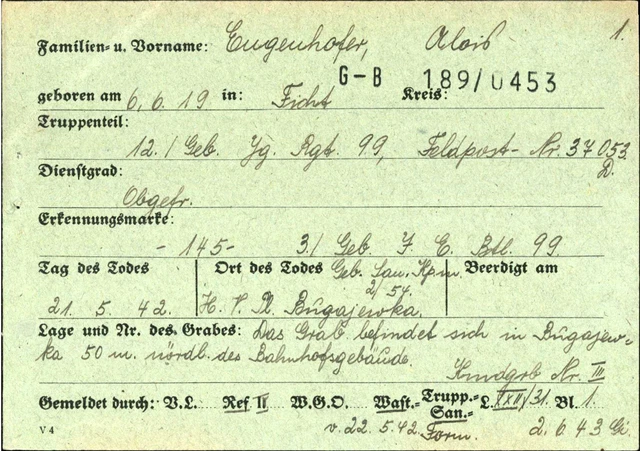 1.
Familien- u. Vorname: Eugenhofer, Alois
G-B 189/0453
geboren am 6. 6. 19 in: Ficht Kreis:
Truppenteil:
12./ Geb. Jg. Rgt. 99, Feldpost- Nr. 37053
D.
Dienstgrad:
Obgefr.
Erkennungsmarke:
- 145 - 3./ Geb. J. E. Btl. 99
Tag des Todes Ort des Todes Geb. San. Kpn. Beerdigt am
2/54.
21. 5. 42. H. V. Pl. Bugajewka.
Lage und Nr. des Grabes: Das Grab befindet sich in Bugajew-
ka 50 m. nördl. des Bahnhofsgebäude.
Kmdgrb Nr. III
Gemeldet durch: V.L. Ref II W.G.O. Wast.- Trupp.- L. XXII/31. Bl. 1
San.-
V 4 v. 22. 5. 42 Form. 2. 6. 43 Gi